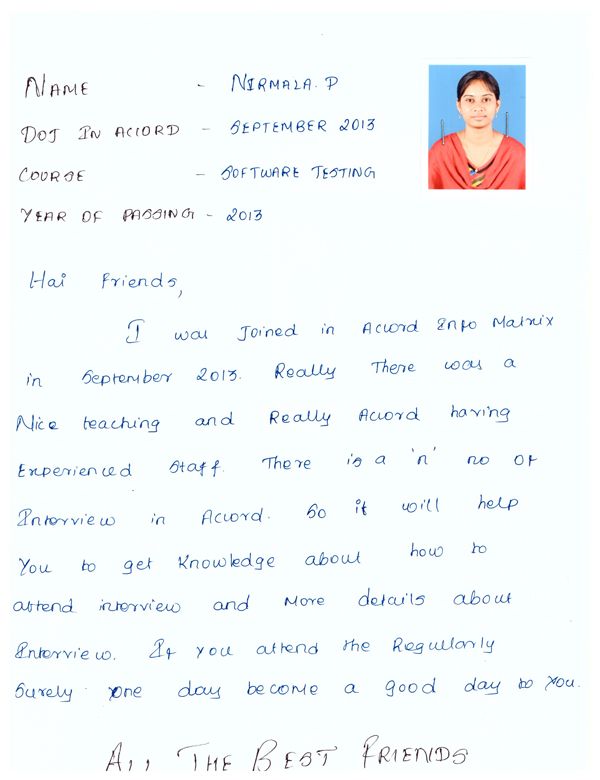 NAME - NIRMALA. P
DOJ IN ACCORD - SEPTEMBER 2013
COURSE - SOFTWARE TESTING
YEAR OF PASSING - 2013
Hai Friends,
I was Joined in Accord Info Matrix
in September 2013. Really There was a
Nice teaching and Really Accord having
Experienced Staff. There is a 'n' no OF
Interview in Accord. So it will help
You to get Knowledge about how to
attend interview and More details about
Interview. If you attend the Regullarly
Surely one day become a good day to You.
ALL THE BEST FRIENDS